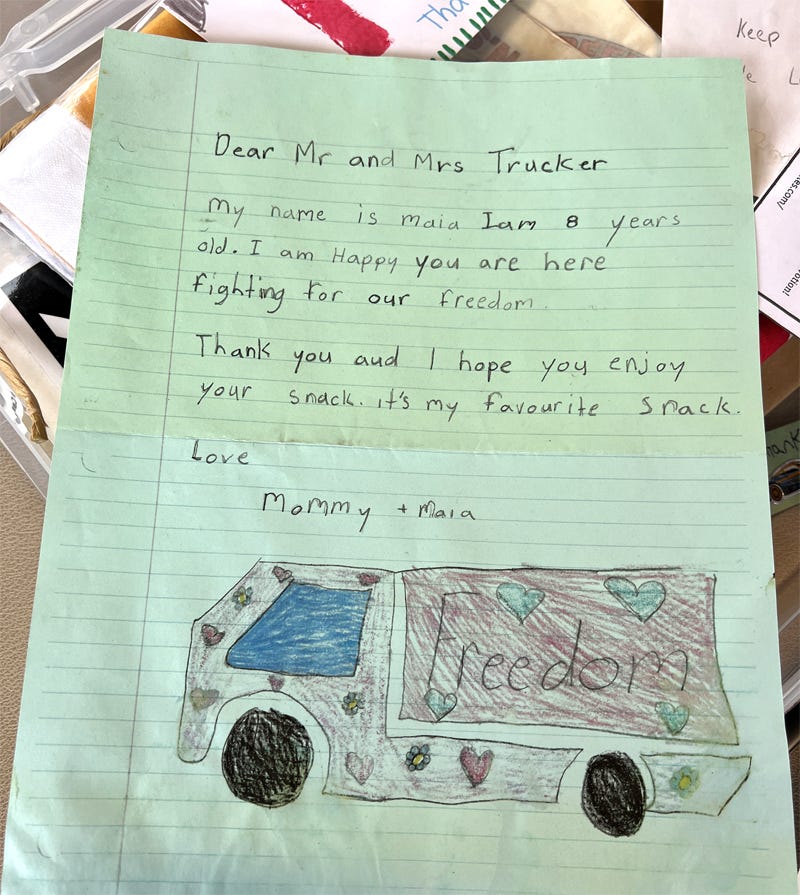 Tha
Keep
Dear Mr and Mrs Trucker
My name is maia Iam 8 years
old. I am Happy you are here
fighting for our freedom.
Thank you and I hope you enjoy
your snack. it's my favourite snack.
Love
Mommy + Maia
Freedom